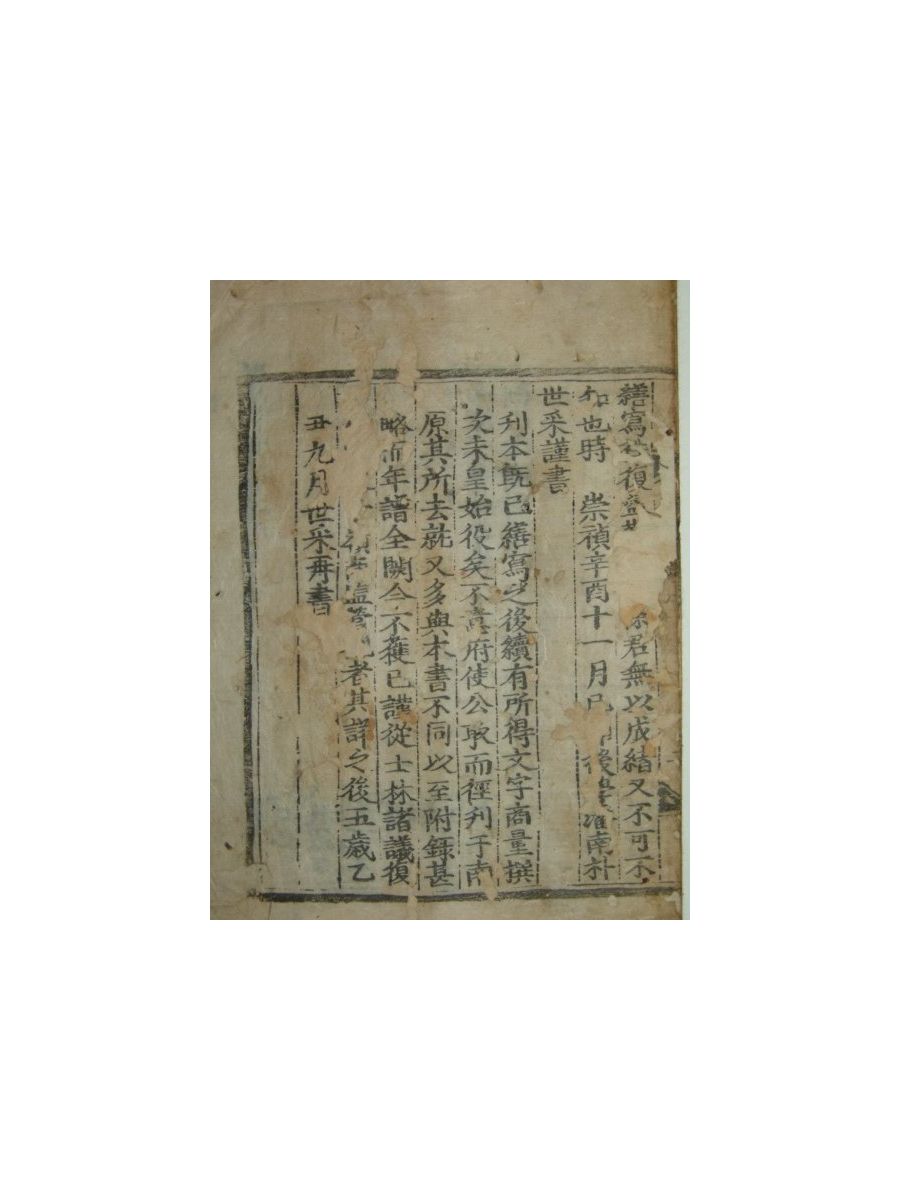 繕寫 復 君無以成緒又不可不
知也時 崇禎辛酉十一月 後學 南朴
世采謹書
刊本旣已繕寫之後續有所得文字商量撰
次未皇始役矣不意府使公取而徑刊于南
原其所去就又多與本書不同以至附錄甚
略而年譜全闕今不獲已謹從士林諸議復
者其詳之後五歲乙
丑九月世采再書